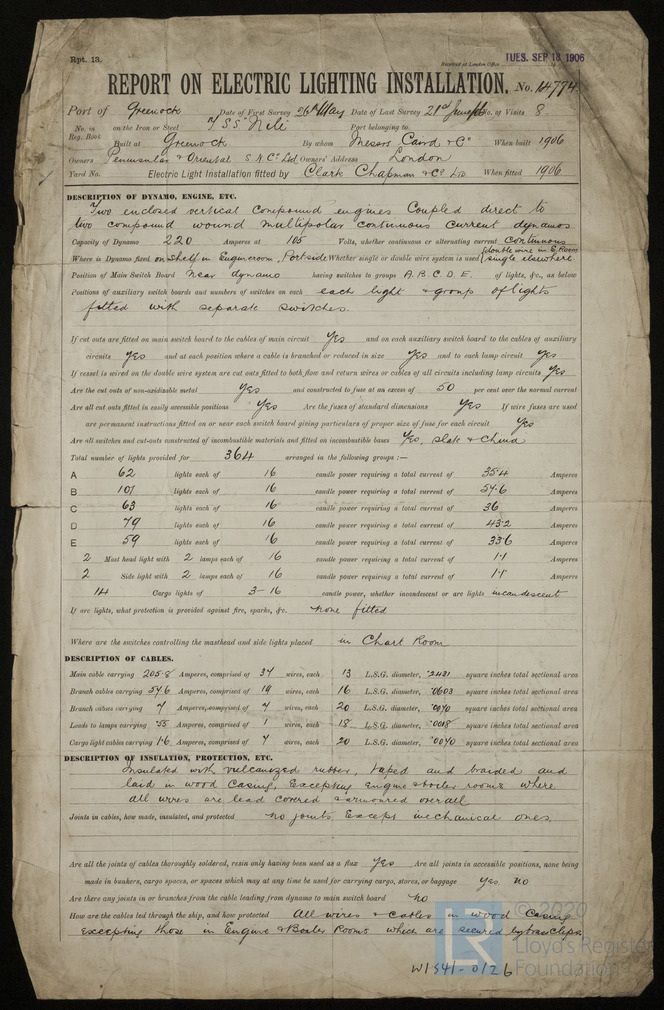 Rpt. 13.
Received at London Office TUES. SEP 18 1906
REPORT ON ELECTRIC LIGHTING INSTALLATION. No. 14774
Port of Greenock Date of First Survey 26th May Date of Last Survey 21st June No. of Visits 8
No. in Reg. Book on the Iron or Steel T SS "Nile" Port belonging to
Built at Greenock By whom Messrs Caird & Co When built 1906
Owners Peninsular & Oriental S. N. Co Ltd Owners' Address London
Yard No. Electric Light Installation fitted by Clark Chapman & Co Ltd When fitted 1906
DESCRIPTION OF DYNAMO, ENGINE, ETC.
Two enclosed vertical compound engines coupled direct to
two compound wound multipolar continuous current dynamos
Capacity of Dynamo 220 Amperes at 105 Volts, whether continuous or alternating current continuous
Where is Dynamo fixed on shelf in Engineroom, Portside Whether single or double wire system is used double wire in E. Room single elsewhere
Position of Main Switch Board near dynamo having switches to groups A. B. C. D. E. of lights, &c., as below
Positions of auxiliary switch boards and numbers of switches on each each light & group of lights
fitted with separate switches.
If cut outs are fitted on main switch board to the cables of main circuit Yes and on each auxiliary switch board to the cables of auxiliary
circuits Yes and at each position where a cable is branched or reduced in size Yes and to each lamp circuit Yes
If vessel is wired on the double wire system are cut outs fitted to both flow and return wires or cables of all circuits including lamp circuits Yes
Are the cut outs of non-oxidizable metal Yes and constructed to fuse at an excess of 50 per cent over the normal current
Are all cut outs fitted in easily accessible positions Yes Are the fuses of standard dimensions Yes If wire fuses are used
are permanent instructions fitted on or near each switch board giving particulars of proper size of fuse for each circuit Yes
Are all switches and cut-outs constructed of incombustible materials and fitted on incombustible bases Yes, slate & china
Total number of lights provided for 364 arranged in the following groups :—
A 62 lights each of 16 candle power requiring a total current of 35.4 Amperes
B 101 lights each of 16 candle power requiring a total current of 57.6 Amperes
C 63 lights each of 16 candle power requiring a total current of 36 Amperes
D 79 lights each of 16 candle power requiring a total current of 43.2 Amperes
E 59 lights each of 16 candle power requiring a total current of 33.6 Amperes
2 Mast head light with 2 lamps each of 16 candle power requiring a total current of 1.1 Amperes
2 Side light with 2 lamps each of 16 candle power requiring a total current of 1.1 Amperes
14 Cargo lights of 3-16 candle power, whether incandescent or arc lights incandescent
If arc lights, what protection is provided against fire, sparks, &c. none fitted
Where are the switches controlling the masthead and side lights placed in Chart Room
DESCRIPTION OF CABLES.
Main cable carrying 205.8 Amperes, comprised of 37 wires, each 13 L.S.G. diameter, .2431 square inches total sectional area
Branch cables carrying 57.6 Amperes, comprised of 19 wires, each 16 L.S.G. diameter, .0603 square inches total sectional area
Branch cables carrying 7 Amperes, comprised of 7 wires, each 20 L.S.G. diameter, .0070 square inches total sectional area
Leads to lamps carrying .55 Amperes, comprised of 1 wires, each 18 L.S.G. diameter, .0018 square inches total sectional area
Cargo light cables carrying 1.6 Amperes, comprised of 7 wires, each 20 L.S.G. diameter, .0070 square inches total sectional area
DESCRIPTION OF INSULATION, PROTECTION, ETC.
Insulated with vulcanized rubber, taped and braided and
laid in wood casing, Excepting Engine & boiler rooms where
all wires are lead covered & armoured overall
Joints in cables, how made, insulated, and protected no joints Except mechanical ones
Are all the joints of cables thoroughly soldered, resin only having been used as a flux Yes Are all joints in accessible positions, none being
made in bunkers, cargo spaces, or spaces which may at any time be used for carrying cargo, stores, or baggage Yes. no
Are there any joints in or branches from the cable leading from dynamo to main switch board no
How are the cables led through the ship, and how protected All wires & cables in wood casing
excepting those in Engine & Boiler Rooms which are secured by brass clips
© 2020
LR
Lloyd's Register
Foundation
W1541-0126